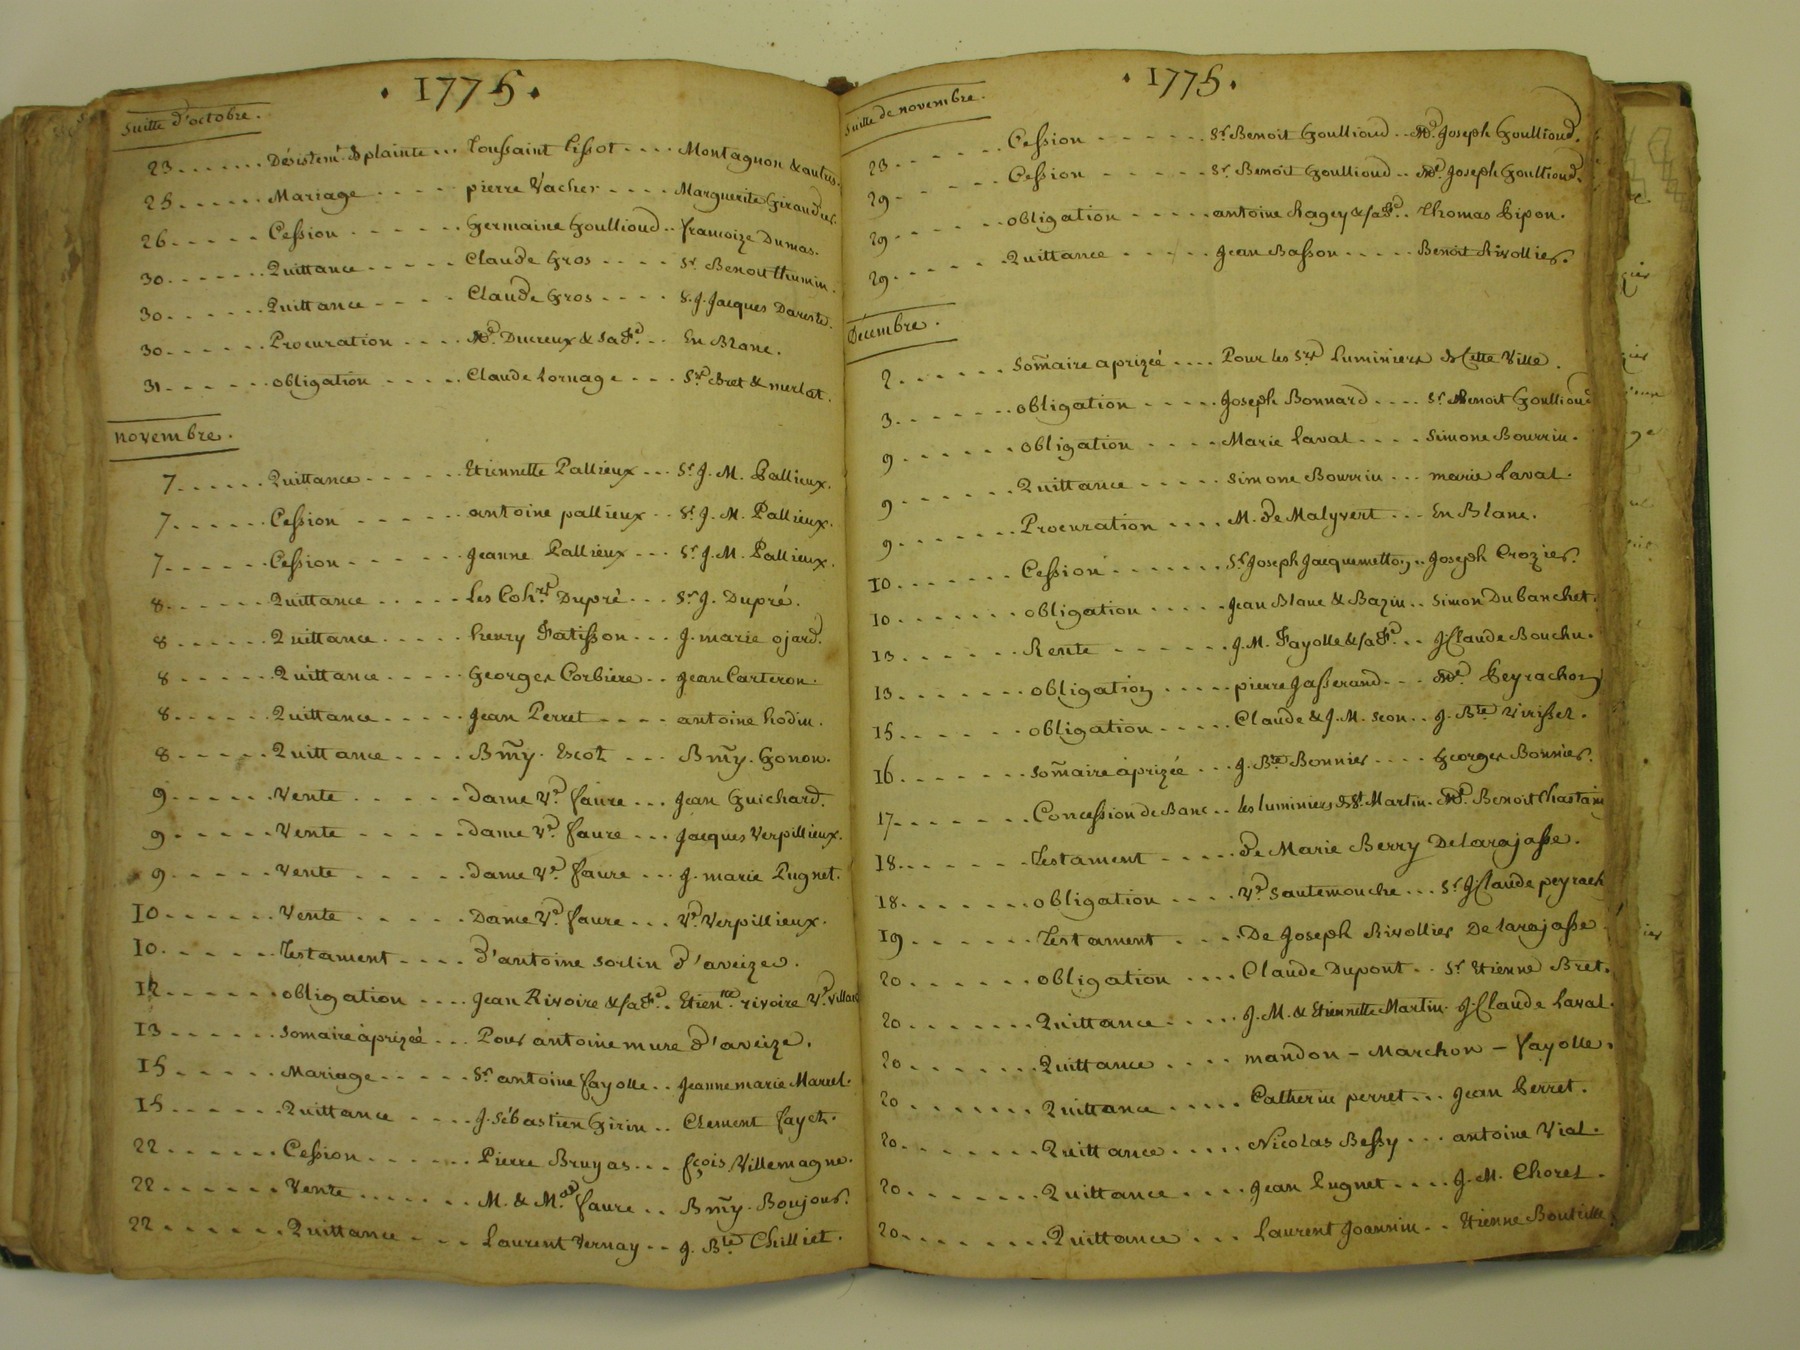 · 1775 ·
Suitte d'octobre.
23 . . . . . . Désistemt. & plainte . . . Toussaint Tissot . . . . Montagnon & autres.
25 . . . . . . Mariage . . . . . pierre Vacher . . . . Marguerite Giraudier.
26 . . . . . Cession . . . . . . Germaine Goullioud . . françoize Dumas.
30 . . . . . . Quittance . . . . . Claude Gros . . . . Sr. Benoit
30 . . . . . . Quittance . . . . Claude Gros . . . . S. J. Jacques Dareste.
30 . . . . . . Procuration . . . . Md. Ducreux & sa fe. . . En Blanc.
31 . . . . . . obligation . . . . . Claude Lornage . . . Srs. Bret & merlat.
novembre.
7 . . . . . . Quittance . . . . . Etiennette Pallieux . . . Sr. J. M. Pallieux.
7 . . . . . . Cession . . . . . antoine pallieux . . Sr. J. M. Pallieux.
7 . . . . . . Cession . . . . . . Jeanne Pallieux . . . Sr. J. M. Pallieux.
8 . . . . . . Quittance . . . . . les Cohrs. Dupré . . . Sr. J. Dupré.
8 . . . . . . Quittance . . . . . henry Fatisson . . . J. marie ojard.
8 . . . . . . Quittance . . . . . Georges Corbiere . . Jean Carteron.
8 . . . . . . Quittance . . . . . Jean Perret . . . . antoine hodin.
8 . . . . . . Quittance . . . . Bmy. Escot . . . Bmy. Gonon.
9 . . . . . . Vente . . . . . . Dame Ve. faure . . . Jean Guichard.
9 . . . . . . Vente . . . . . . Dame Ve. faure . . . Jacques Verpillieux.
9 . . . . . . Vente . . . . . . Dame Ve. faure . . . J. marie Pugnet.
10 . . . . . . Vente . . . . . . Dame Ve. faure . . . Ve. Verpillieux.
10 . . . . . . Testament . . . . d'antoine sorlin d'aveize.
12 . . . . . . obligation . . . . Jean Rivoire & sa fe. . Etiennte. rivoire Ve. Villard
13 . . . . . . somaire àprizée . . . Pour antoine mure d'aveize.
15 . . . . . . Mariage . . . . . Sr. antoine fayolle . . Jeanne marie Marcel.
15 . . . . . . Quittance . . . . J. Sébastien Girin . . Clement fayet.
22 . . . . . . Cession . . . . . . Pierre Bruyas . . . fçois Villemagne.
22 . . . . . . Vente . . . . . . M. & Made. faure . . Bmy. Boujour.
22 . . . . . . Quittance . . . Laurent Vernay . . J. Bte. Chilliet.
· 1775 ·
Suitte de novembre.
23 . . . . . . Cession . . . . . . Sr. Benoit Goullioud . . Md. Joseph Goullioud.
29 . . . . . . Cession . . . . . . Sr. Benoit Goullioud . . Me. Joseph Goullioud.
29 . . . . . . obligation . . . . . antoine Ragey & sa fe. . Thomas Pipon.
29 . . . . . . Quittance . . . . . . Jean Basson . . . . . Benoit Rivollier.
Décembre.
2 . . . . . . somaire aprizéé . . . . Pour les Srs. Luminiers de Cette Ville.
3 . . . . . . obligation . . . . . Joseph Bonnard . . . . Sr. Benoit Goullioud
9 . . . . . . obligation . . . . Marie Laval . . . . Simone Bourrin.
9 . . . . . . Quittance . . . . . simone Bourrin . . . marie Laval.
9 . . . . . . Procuration . . . . M. de Malyvert . . . En Blanc.
10 . . . . . . Cession . . . . . . Sr. Joseph Jacquemetton . . Joseph Crozier.
10 . . . . . . obligation . . . . . Jean Blanc & Bazin . . Simon Dubanchet.
13 . . . . . . Rente . . . . . . J. M. Fayolle & sa fe. . . J. Claude Bouchu.
13 . . . . . . obligation . . . . . pierre Jasserand . . . Me. Peyrachon
15 . . . . . . obligation . . . . . Claude & J. M. Seon . . J. Bte. Virissel.
16 . . . . . . somaire àprizée . . . J. Bte. Bonnier . . . . Georges Bonnier.
17 . . . . . . Concession de Banc . . les luminiers de St. Martin. Md. Benoit Chastaing
18 . . . . . . Testament . . . . . de Marie Berry De larajasse.
18 . . . . . . obligation . . . . Ve. Sautemouche . . . Sr. J. Claude peyrach
19 . . . . . . Testament . . . . De Joseph Rivollier De larajasse
20 . . . . . . obligation . . . . Claude Dupont . . Sr. Etienne Bret.
20 . . . . . . Quittance . . . . . J. M. & Etiennette Martin. J. Claude Laval.
20 . . . . . . Quittance . . . . mandon - Marchon - fayolle.
20 . . . . . . Quittance . . . . . Catherin perret . . . Jean Perret.
20 . . . . . . Quittance . . . . . Nicolas Bessy . . . antoine Vial.
20 . . . . . . Quittance . . . . Jean Pugnet . . . . J. M. Chorel.
20 . . . . . . Quittance . . . Laurent Joannin . . Etienne Bouteille